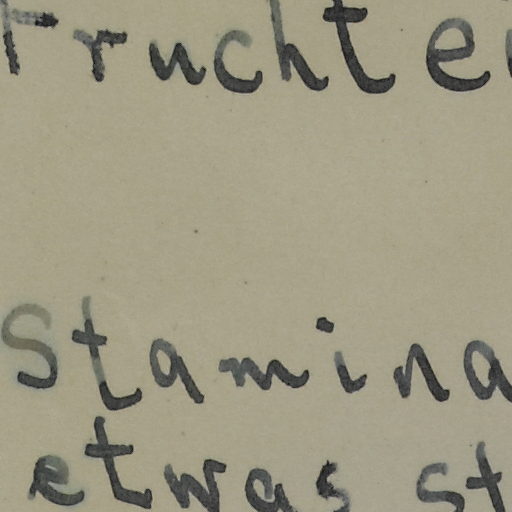 Fruchte
Stamina
etwas st